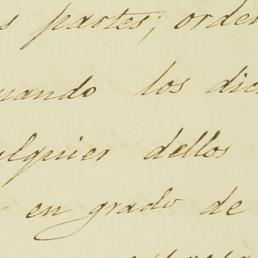 s partes; orden
uando los dic
ualquier dellos
en grado de